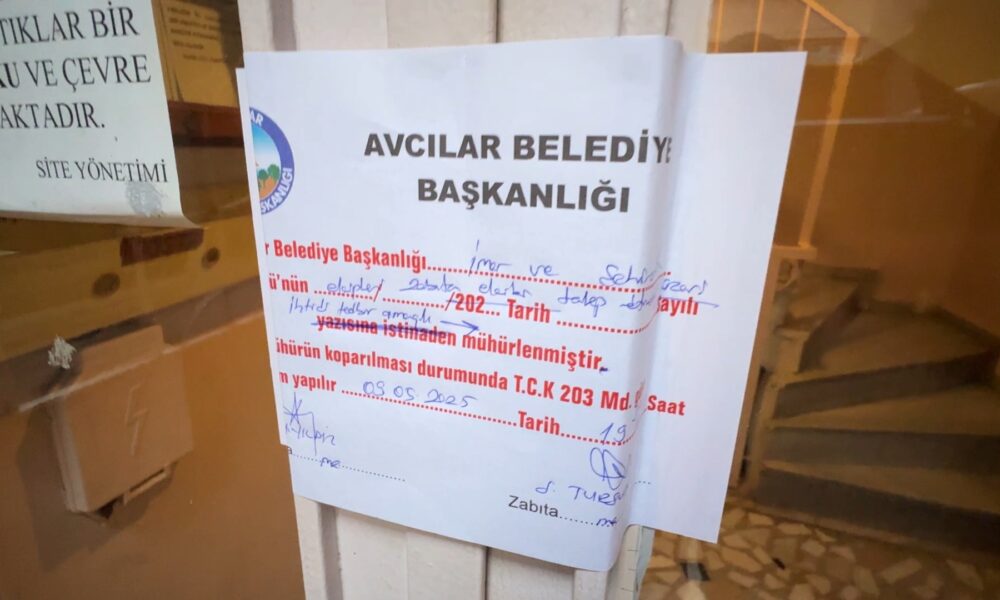 TIKLAR BİR
KU VE ÇEVRE
AKTADIR.
SİTE YÖNETİMİ
AVCILAR BELEDİYE
BAŞKANLIĞI
AR
ŞKANLIĞI
r Belediye Başkanlığı......İmar ve Şehir
ü'nün ekipleri zabıta talep /202... Tarih ............ sayılı
ihtiyati tedbir amaçlı →
yazısına istinaden mühürlenmiştir.
ühürün koparılması durumunda T.C.K 203 Md.
m yapılır ......09.05.2025......Tarih......19 Saat
J. TURS
Zabıta........